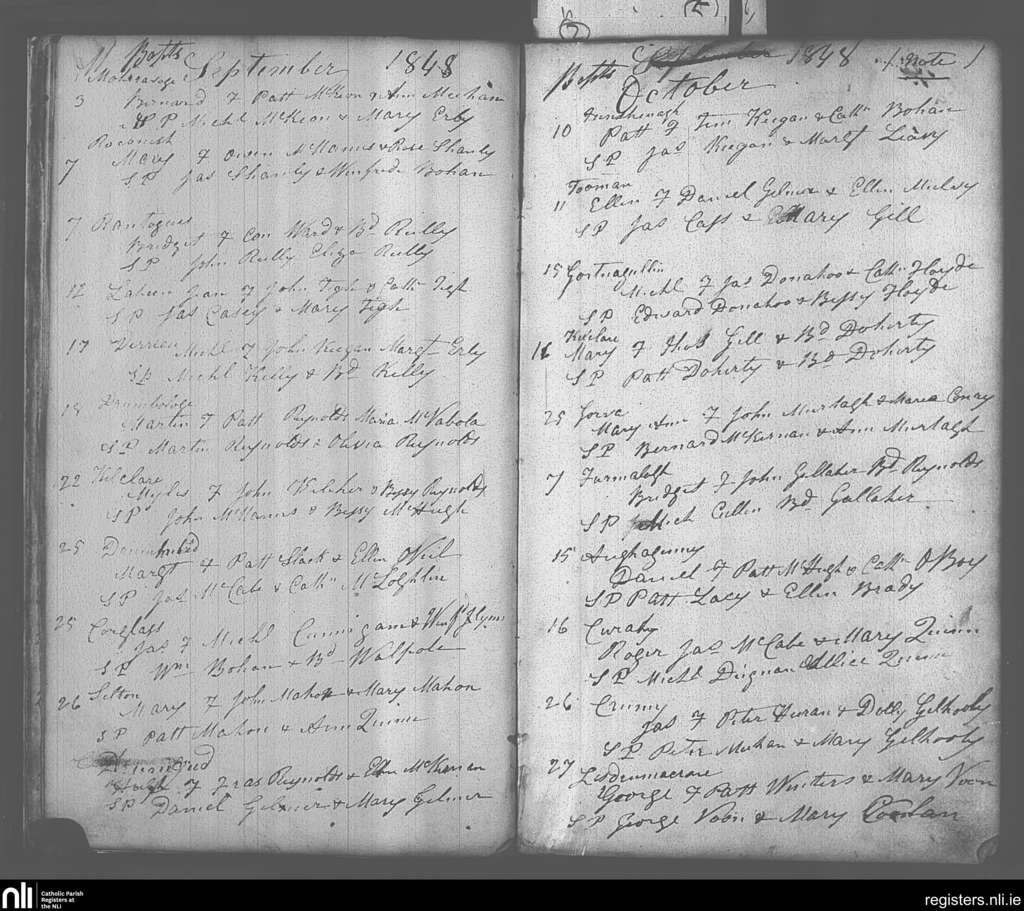 Bapts September 1848
3 Bernard of Patt McKeon & Ann Meehan
SP Michl McKeon & Mary Erly
7 Mary of Owen McManus & Rose Shanly
SP Jas Shanly & Winfrede Bohan
7 Rantogues
Bridget of Con Ward & Bd Reilly
SP John Reilly Eliza Reilly
12 Laheen Jean of John Tigh & Cathn Tigh
SP Jas Casey & Mary Tigh
17 Michl of John Keegan Margt Erly
SP Michl Kelly & Bd Kelly
18
Martin of Patt Reynolds Maria McNabola
SP Martin Reynolds & Olivia Reynolds
22 Kilclare
Myles of John & Bessy Reynolds
SP John McManus & Bessy McHugh
25
Margt of Patt Slack & Ellen ONeil
SP Jas McCabe & Cathn McLoghlin
25 Corglass
Jas of Michl Cunnigam & Winfd Flynn
SP Wm Bohan & Bd Walpole
26 Selton
Mary of John Mahon & Mary Mahon
SP Patt Mahon & Ann Quinn
Hugh of Fras Reynolds & Ellen McKiernan
SP Daniel Gilmer & Mary Gilmer
Bapts September 1848 Note
October
10
Patt of Tim Keegan & Cathn Bohan
SP Jas Keegan & Margt Leavy
Tooman
11 Ellen of Daniel Gilmer & Ellen Mulvy
SP Jas & Mary Gill
15 Gortnagullin
Michl of Jas Donahoo & Cathn Floyde
SP Edward Donahoo & Bessy Floyde
Kilclare
16 Mary of Thos Gill & Bd Doherty
SP Patt Doherty & Bd Doherty
25
Mary Ann of John Murtagh & Maria Conay
SP Bernard McKernan & Ann Murtagh
7
Bridget of John Gallaher Bd Reynolds
SP Mich Cullin Bd Gallaher
15
Daniel of Patt McHugh & Cathn OBoy
SP Patt Lacy & Ellen Brady
16 Curahy
Roger Jas McCabe & Mary Quinn
SP Michl Dignan Allice Quinn
26 Crummy
Jas of Peter & Dolly Gilhooly
SP Peter Meehan & Mary Gilhooly
27 Lisdrumacrone
George of Patt Winters & Mary Noon
SP George Noon & Mary
nli
Catholic Parish
Registers at
the NLI
registers.nli.ie